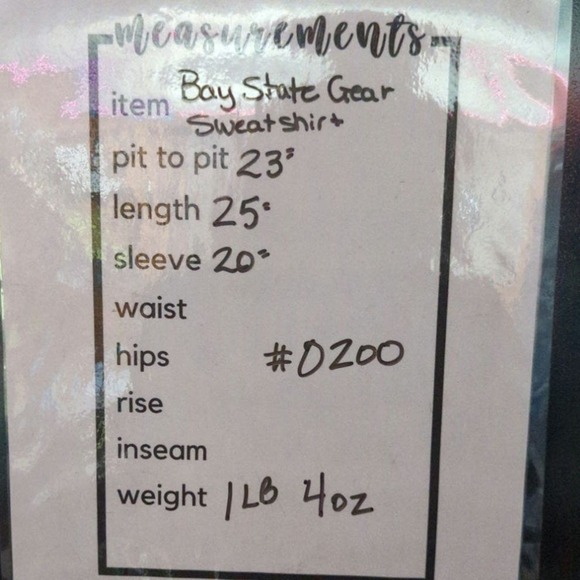 measurements
item Bay State Gear
Sweatshirt
pit to pit 23"
length 25"
sleeve 20"
waist
hips #0200
rise
inseam
weight 1LB 4oz